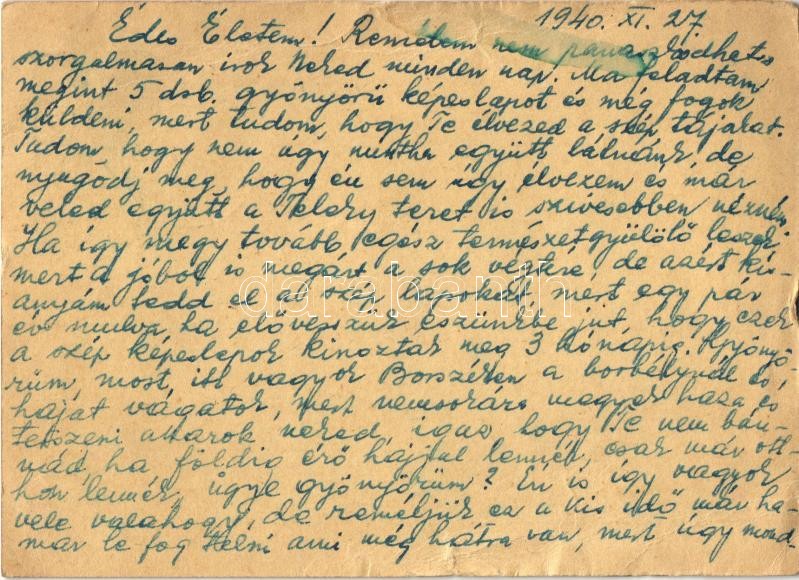 1940. XI. 27
Édes Életem! Remélem nem panaszkodhatsz
szorgalmasan irok Neked minden nap. Ma feladtam
megint 5 dsb. gyönyörű képeslapot és még fogok
küldeni, mert tudom, hogy Te élvezed a szép tájakat.
Tudom hogy nem úgy mintha együtt látnánk, de
nyugodj meg, hogy én sem úgy élvezem és már
veled együtt a Teleky teret is szivesebben nézném.
Ha így megy tovább egész természetgyűlölő leszek
mert a jóból is megárt a sok, de azért kis-
anyám tedd el a szép lapokat, mert egy pár
év mulva ha elővesszük eszünkbe jut, hogy ezek
a szép képeslapok kinoztak meg 3 hónapig. Gyönyö-
rűm, most itt vagyok Borszéken a borbélynál és
haját vágatok, mert nemsokára megyek haza és
tetszeni akarok neked, igaz hogy Te nem bán-
nád, ha földig érő hajjal lennék, csak már ott-
hon lennék, ugye gyönyörűm? Én is így vagyok
vele valahogy, de reméljük ez a kis idő már ha-
mar le fog telni ami még hátra van, mert úgy mond-
darabanth